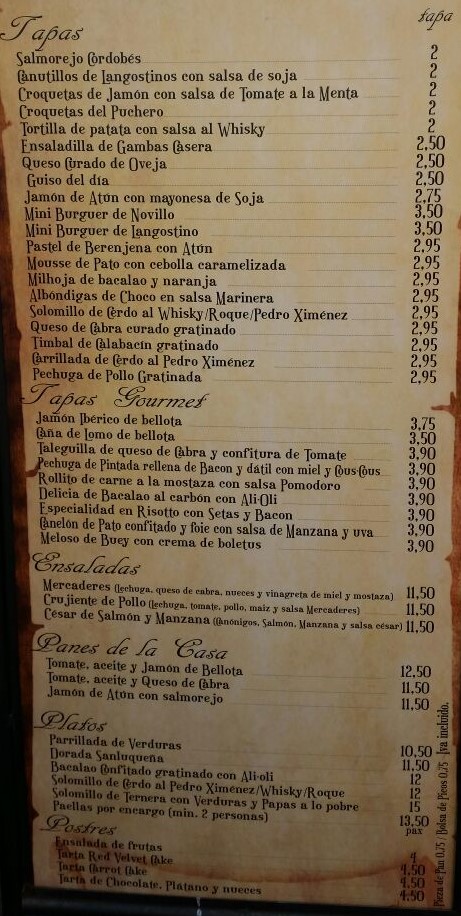 Tapas tapa
Salmorejo Cordobés 2
Canutillos de Langostinos con salsa de soja 2
Croquetas de Jamón con salsa de Tomate a la Menta 2
Croquetas del Puchero 2
Tortilla de patata con salsa al Whisky 2
Ensaladilla de Gambas Casera 2,50
Queso Curado de Oveja 2,50
Guiso del día 2,50
Jamón de Atún con mayonesa de Soja 2,75
Mini Burguer de Novillo 3,50
Mini Burguer de Langostino 3,50
Pastel de Berenjena con Atún 2,95
Mousse de Pato con cebolla caramelizada 2,95
Milhoja de bacalao y naranja 2,95
Albóndigas de Choco en salsa Marinera 2,95
Solomillo de Cerdo al Whisky/Roque/Pedro Ximénez 2,95
Queso de Cabra curado gratinado 2,95
Timbal de Calabacín gratinado 2,95
Carrillada de Cerdo al Pedro Ximénez 2,95
Pechuga de Pollo Gratinada 2,95
Tapas Gourmet
Jamón Ibérico de bellota 3,75
Caña de Lomo de bellota 3,50
Taleguilla de queso de Cabra y confitura de Tomate 3,90
Pechuga de Pintada rellena de Bacon y dátil con miel y Cous-Cous 3,90
Rollito de carne a la mostaza con salsa Pomodoro 3,90
Delicia de Bacalao al carbón con Ali-Oli 3,90
Especialidad en Risotto con Setas y Bacon 3,90
Canelón de Pato confitado y foie con salsa de Manzana y uva 3,90
Meloso de Buey con crema de boletus 3,90
Ensaladas
Mercaderes (Lechuga, queso de cabra, nueces y vinagreta de miel y mostaza) 11,50
Crujiente de Pollo (Lechuga, tomate, pollo, maiz y salsa Mercaderes) 11,50
César de Salmón y Manzana (Canónigos, Salmón, Manzana y salsa césar) 11,50
Panes de la Casa
Tomate, aceite y Jamón de Bellota 12,50
Tomate, aceite y Queso de Cabra 11,50
Jamón de Atún con salmorejo 11,50
Platos
Parrillada de Verduras 10,50
Dorada Sanluqueña 11,50
Bacalao Confitado gratinado con Ali-oli 12
Solomillo de Cerdo al Pedro Ximénez/Whisky/Roque 12
Solomillo de Ternera con Verduras y Papas a lo pobre 15
Paellas por encargo (min. 2 personas) 13,50
pax
Postres
Ensalada de frutas 4
Tarta Red Velvet Cake 4,50
Tarta Carrot Cake 4,50
Tarta de Chocolate, Plátano y nueces 4,50
Pieza de Pan 0,75 / Bolsa de Picos 0,75 Iva incluido.